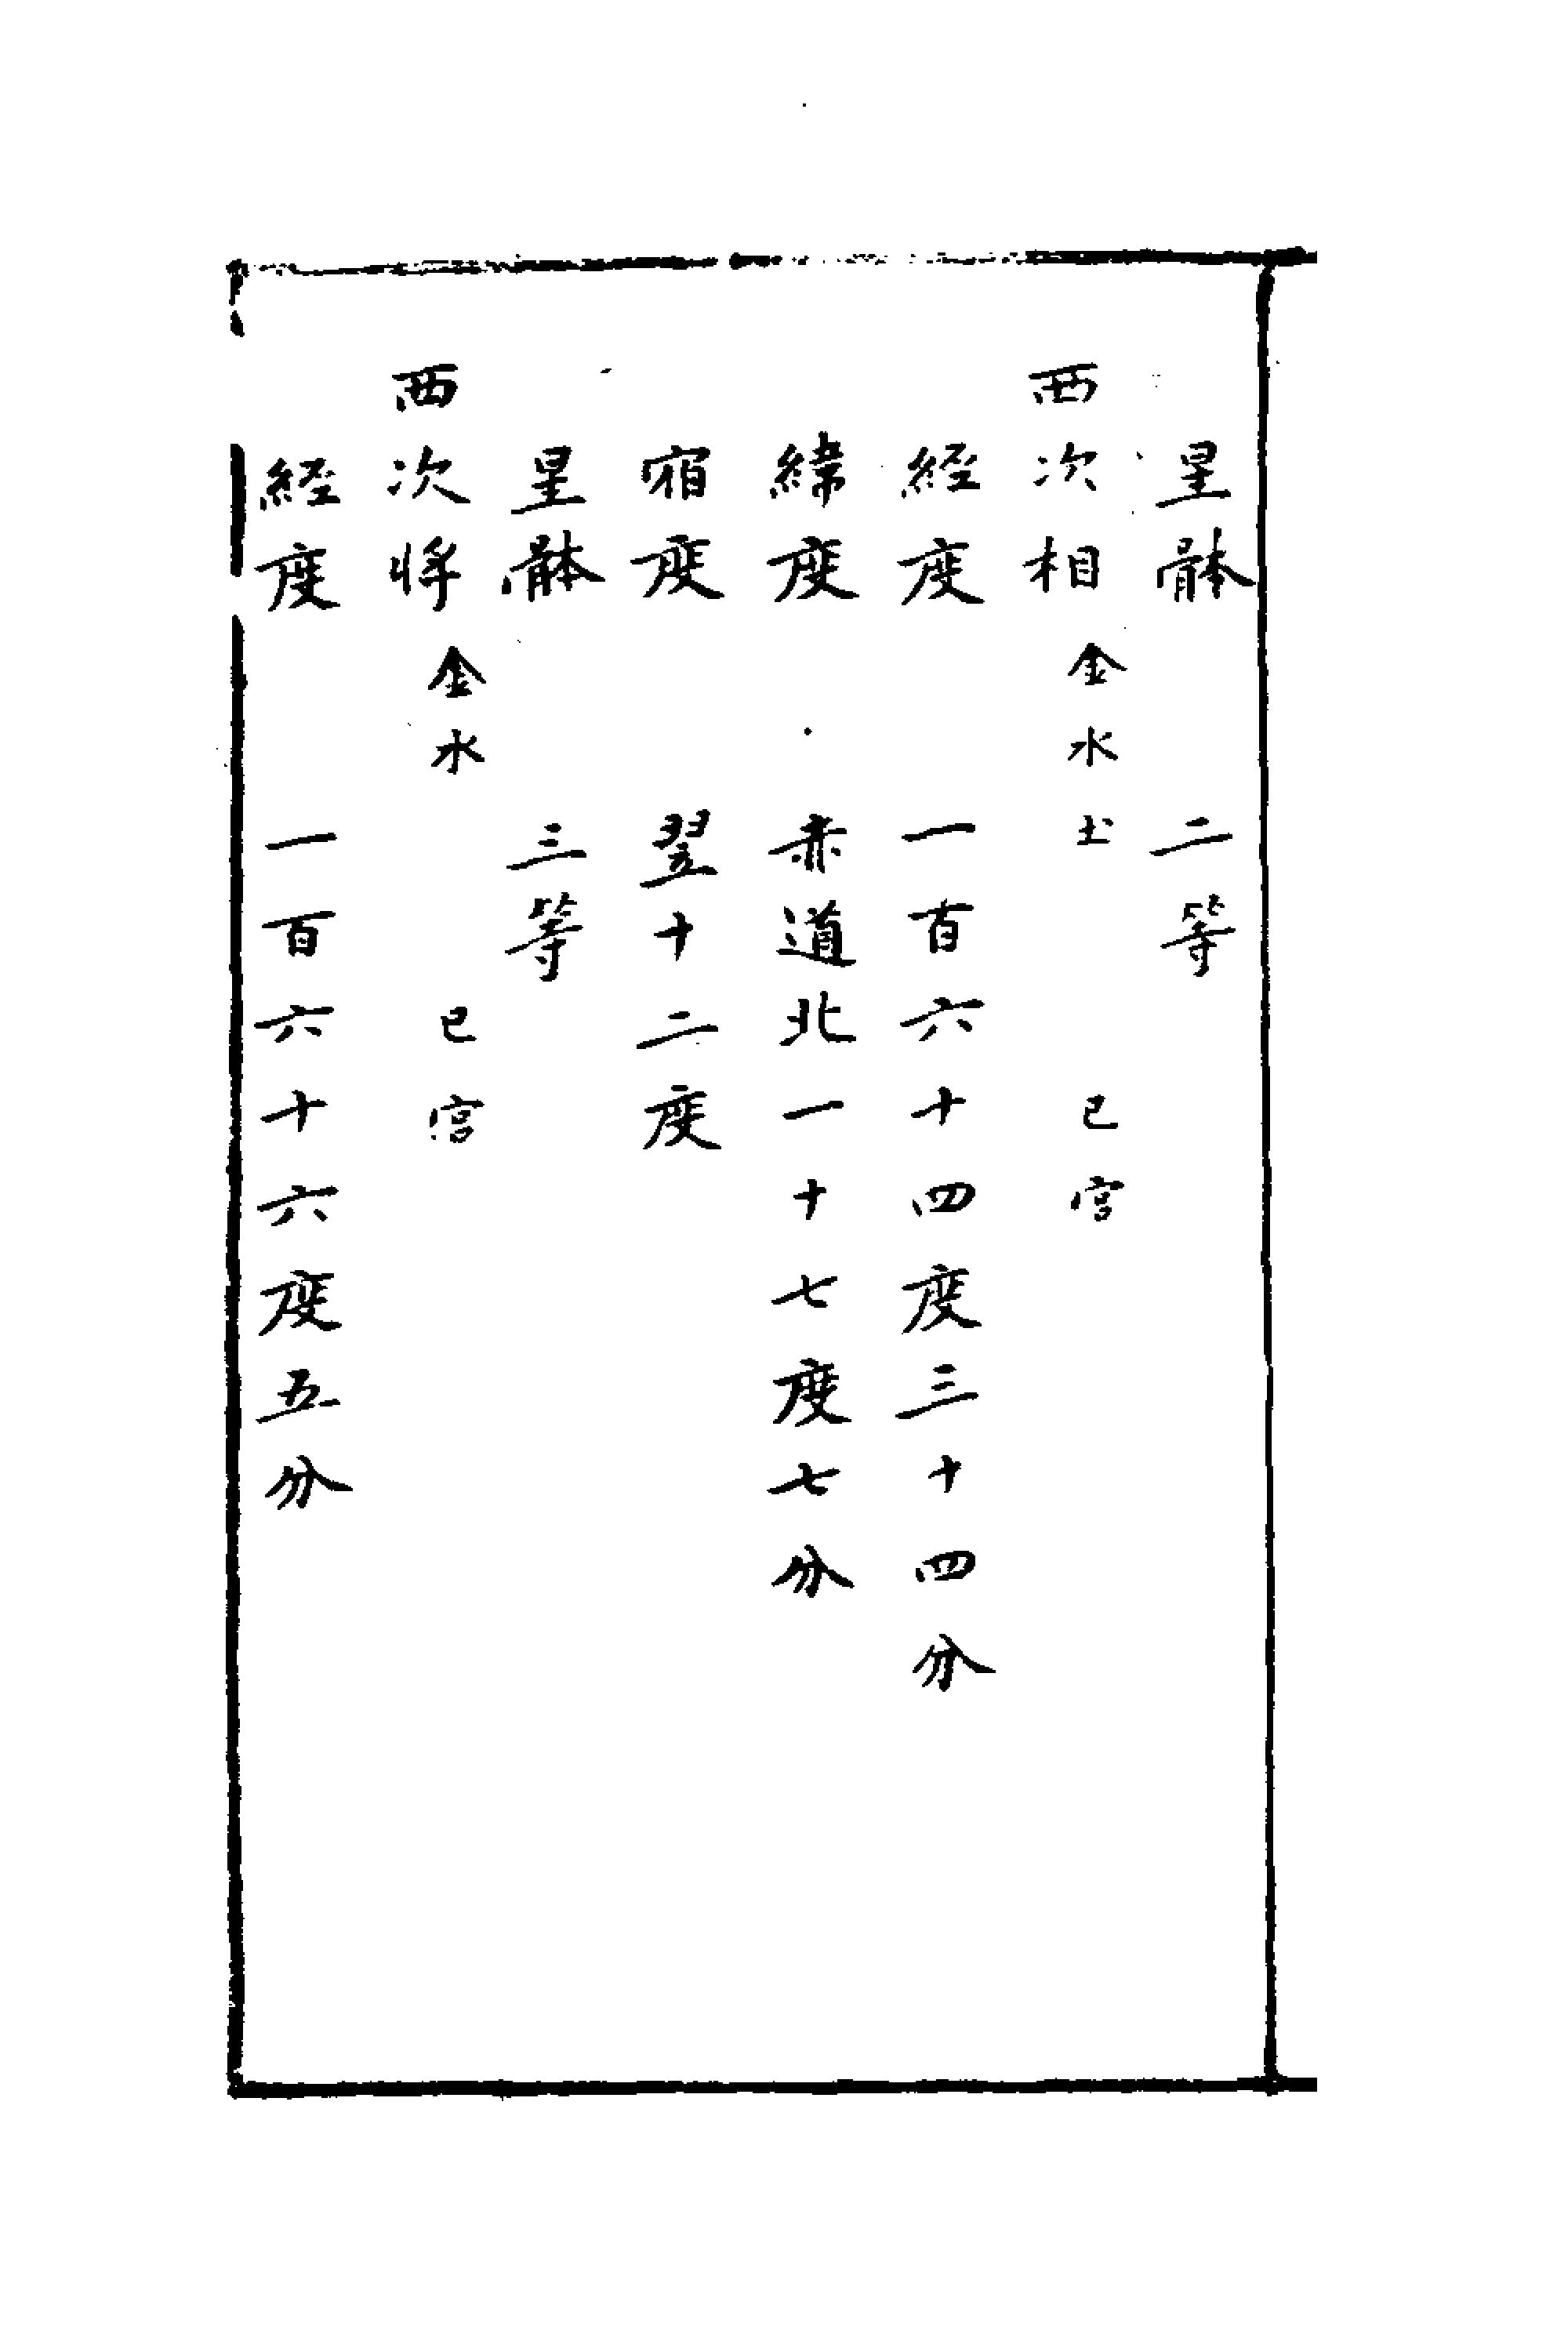 星躰　二等
西次相　金水土　巳宫
経度　一百六十四度三十四分
緯度　赤道北一十七度七分
宿度　翌十二度
星躰　三等
西次将　金水　巳宫
経度　一百六十六度五分